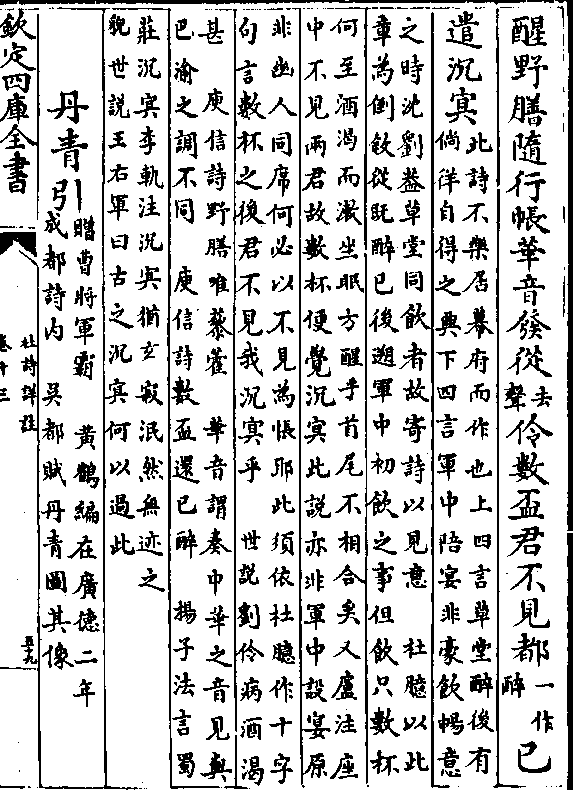 醒野膳隨行帳華音發從去聲伶數盃君不見都一作醉已
遣沉冥此詩不樂居幕府而作也上四言草堂醉後有
倘徉自得之興下四言軍中陪宴非豪飲暢意
之時沈劉盎草堂同飲者故寄詩以見意　杜臆以此
章為倒敘從既醉已後遡軍中初飲之事但飲只數杯
何至酒渴而漱坐眠方醒乎首尾不相合矣又盧注座
中不見兩君故數杯便覺沉冥此說亦非軍中設宴原
非幽人同席何必以不見為悵耶此須依杜臆作十字
句言數杯之後君不見我沉冥乎　世說劉伶病酒渴
甚　庾信詩野膳唯藜藿　華音謂奏中華之音見與
巴渝之調不同　庾信詩數盃還已醉　揚子法言蜀
莊沉冥李軌注沉冥猶玄寂泯然無迹之
貌世說王右軍曰古之沉冥何以過此
丹青引贈曹將軍霸　黃鶴編在廣德二年
成都詩內　吳都賦丹青圖其像
欽定四庫全書
杜詩詳註
卷十三
五十九